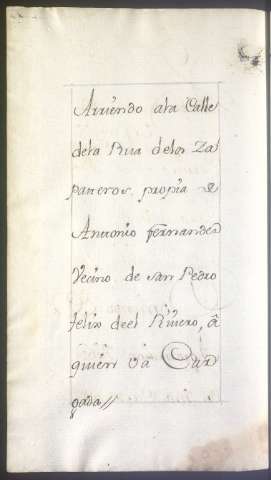 Arriendo a la Calle
dela Rua delos Za
pateros, propia de
Antonio fernandez
Vecino de san Pedro
felix deel Riuero, â
quien vâ Car
gada//